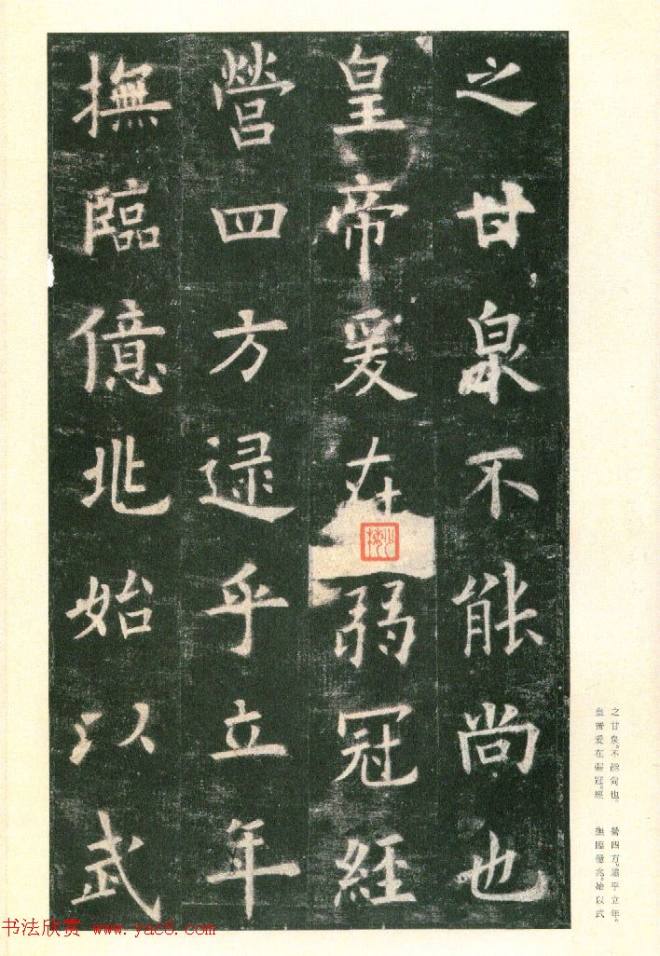 之甘泉不能尚也
皇帝爰在弱冠經
營四方逮乎立年
撫臨億兆始以武
之甘泉。不能尚也。
皇帝爰在弱冠。經
營四方。逮乎立年。
撫臨億兆。始以武
书法欣赏 www.yac8.com